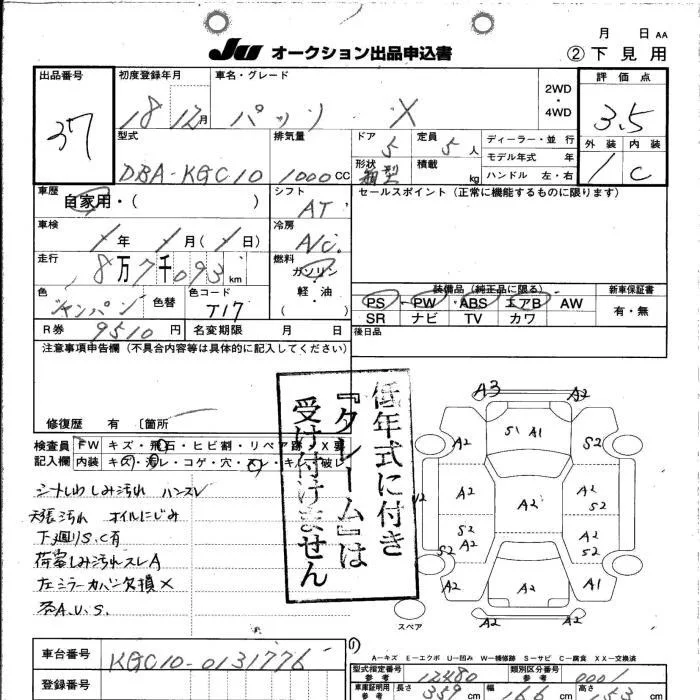 月 日 AA
JU オークション出品申込書 ②下見用
出品番号 初度登録年月 車名・グレード 2WD・4WD 評価点
37 18 12月 パッソ X 3.5
型式 排気量 ドア 5 定員 5人 ディーラー・並行 外装 内装
DBA-KGC10 1000CC 形状 箱型 積載 kg モデル年式 年 1 C
ハンドル 左・右
車歴 シフト セールスポイント(正常に機能するものに限ります)
自家用・( ) AT
車検 冷房
年 月( 日) A/C
走行 燃料
8万7千093km ガソリン・軽油 ( )
装備品(純正品に限る) 新車保証書
色 色替 色コード PS PW ABS エアB AW 有・無
シャンパン T17 SR ナビ TV カワ
R券 9510円 名変期限 月 日 後日品
注意事項申告欄(不具合内容等は具体的に記入してください)
修復歴 有 〔箇所
検査員 FW キズ・飛石・ヒビ割・リペア跡・X要
記入欄 内装 キズ・汚レ・コゲ・穴・スレ・キレ・破レ
シートしわ しみ汚れ ハンスレ
天張汚れ オイルにじみ
下廻りS.C有
荷室しみ汚れスレA
左ミラーカバー欠損X
A.U.S.
低年式に付き
『クレーム』は
受け付けません
A3 A2
A2 S1 A1 S2
A2 A2 A2 S2
S2 A2 A2 S2
S2 A2 A2 A1
A2 A2
スペア
A－キズ E－エクボ U－凹み W－補修跡 S－サビ C－腐食 XX－交換済
車台番号 KGC10-0131776
登録番号
型式指定番号 参考 12480 類別区分番号 参考 0001
車庫証明用 参考 長さ 359cm 幅 166cm 高さ 153cm